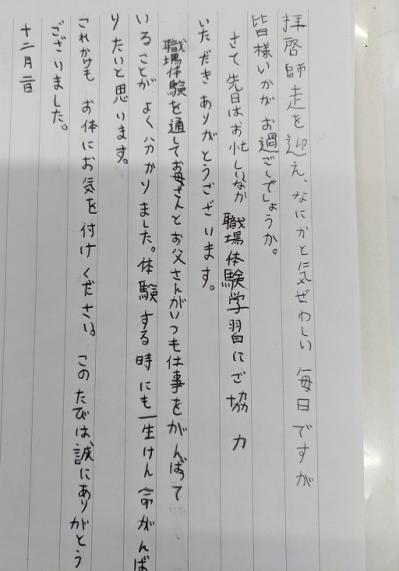 拝啓師走を迎え、なにかと気ぜわしい毎日ですが
皆様いかがお過ごしでしょうか。
さて先日はお忙しいなか職場体験学習にご協力
いただきありがとうございます。
職場体験を通してお母さんとお父さんがいつも仕事をがんばって
いることがよく分かりました。体験する時にも一生けん命がんば
りたいと思います。
これかけも お体にお気を付けください。このたびは、誠にありがとう
ございました。
十二月二日